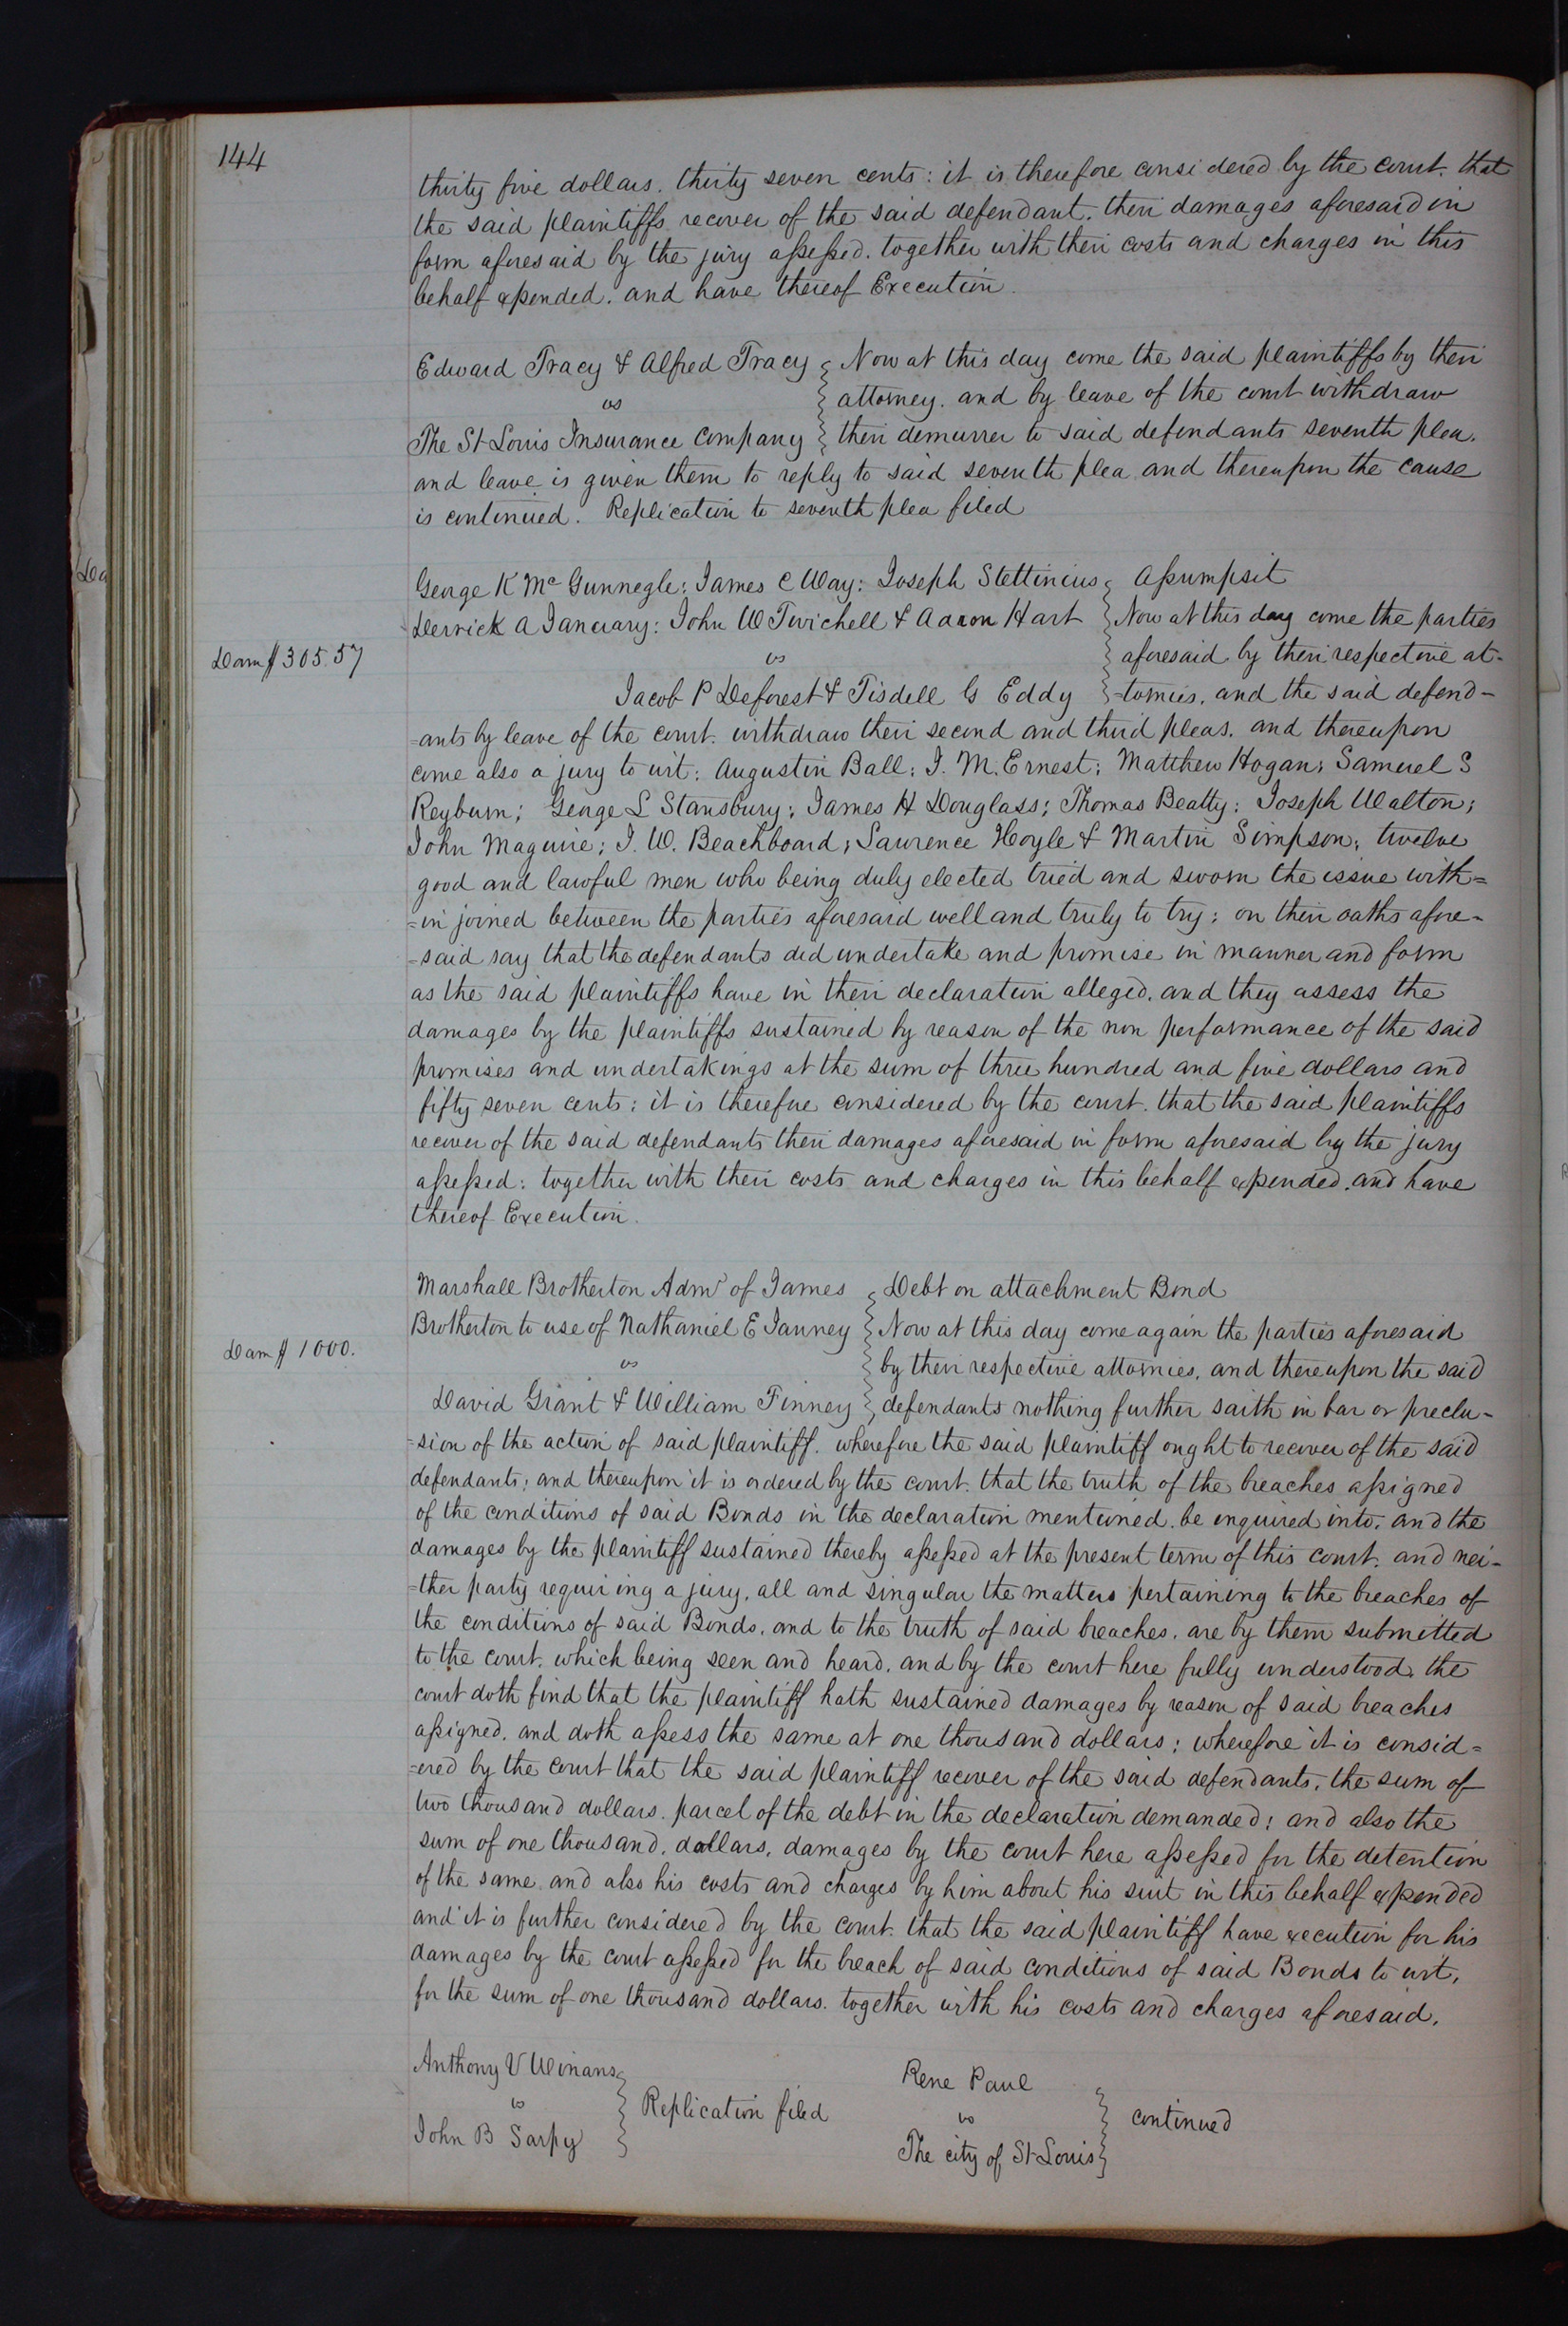 144
thirty five dollars. thirty seven cents: it is therefore considered by the court. that
the said plaintiffs recover of the said defendant. their damages aforesaid in
form aforesaid by the jury assessed. together with their costs and charges in this
behalf expended. and have thereof Execution.
Edward Tracy & Alfred Tracy
vs
The St Louis Insurance Company
Now at this day come the said plaintiffs by their
attorney. and by leave of the court withdraw
their demurrer to said defendants seventh plea.
and leave is given them to reply to said seventh plea and thereupon the cause
is continued. Replication to seventh plea filed
George K McGunnegle: James C Way: Joseph Stettinius
Derrick A January: John W Twichell & Aaron Hart
vs
Jacob P Deforest & Tisdell G Eddy
Dam $305.57
Assumpsit
Now at this day come the parties
aforesaid by their respective at-
=tornies, and the said defend-
=ants by leave of the court. withdraw their second and third pleas. and thereupon
come also a jury to wit: Augustin Ball: J. M. Ernest: Matthew Hogan: Samuel S
Reyburn; George L Stansbury; James H Douglass; Thomas Beatty: Joseph Walton;
John Maguire; J. W. Beachboard; Lawrence Hoyle & Martin Simpson; twelve
good and lawful men who being duly elected tried and sworn the issue with=
=in joined between the parties aforesaid well and truly to try; on their oaths afore-
=said say that the defendants did undertake and promise in manner and form
as the said plaintiffs have in their declaration alleged. and they assess the
damages by the plaintiffs sustained by reason of the non performance of the said
promises and undertakings at the sum of three hundred and five dollars and
fifty seven cents; it is therefore considered by the court. that the said plaintiffs
recover of the said defendants their damages aforesaid in form aforesaid by the jury
assessed: together with their costs and charges in this behalf expended. and have
thereof Execution.
Marshall Brotherton Admr of James
Brotherton to use of Nathaniel E Janney
vs
David Grant & William Finney
Dam $1000.
Debt on attachment Bond
Now at this day come again the parties aforesaid
by their respective attornies, and thereupon the said
defendants nothing further saith in bar or preclu-
=sion of the action of said plaintiff. wherefore the said plaintiff ought to recover of the said
defendants; and thereupon it is ordered by the court. that the truth of the breaches assigned
of the conditions of said Bonds in the declaration mentioned. be inquired into. and the
damages by the plaintiff sustained thereby assessed at the present term of this court. and nei-
=ther party requiring a jury, all and singular the matters pertaining to the breaches of
the conditions of said Bonds. and to the truth of said breaches. are by them submitted
to the court. which being seen and heard. and by the court here fully understood. the
court doth find that the plaintiff hath sustained damages by reason of said breaches
assigned. and doth assess the same at one thousand dollars; wherefore it is consid=
=ered by the court that the said plaintiff recover of the said defendants. the sum of
two thousand dollars. parcel of the debt in the declaration demanded; and also the
sum of one thousand. dollars, damages by the court here assessed for the detention
of the same. and also his costs and charges by him about his suit in this behalf expended
and it is further considered by the court. that the said plaintiff have execution for his
damages by the court assessed for the breach of said conditions of said Bonds to wit,
for the sum of one thousand dollars. together with his costs and charges aforesaid.
Anthony V Winans
vs
John B Sarpy
Replication filed
Rene Paul
vs
The city of St Louis
continued